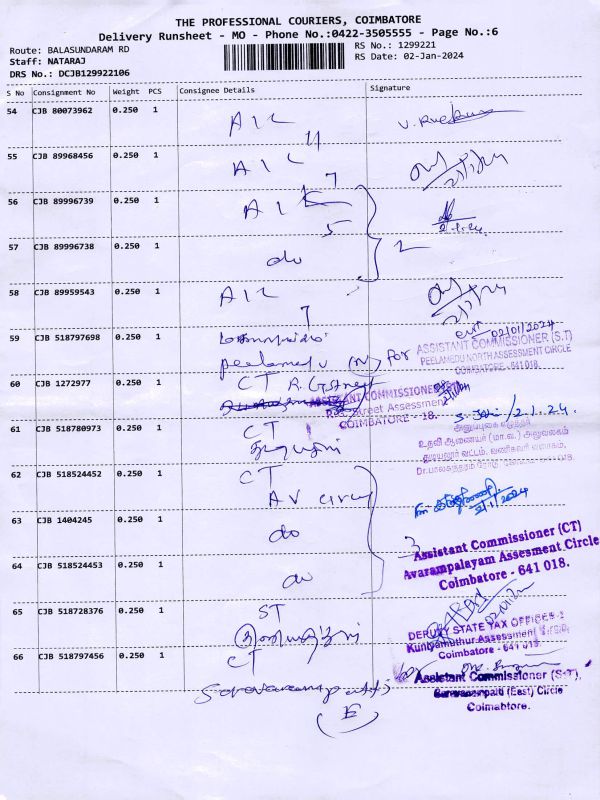 THE PROFESSIONAL COURIERS, COIMBATORE
Delivery Runsheet - MO - Phone No.:0422-3505555 - Page No.:6
Route: BALASUNDARAM RD
RS No.: 1299221
Staff: NATARAJ
RS Date: 02-Jan-2024
DRS No.: DCJB129922106
S No Consignment No Weight PCS Consignee Details Signature
54 CJB 80073962 0.250 1 AIC
11
55 CJB 89968456 0.250 1 AIC
7
56 CJB 89996739 0.250 1 AIC
5
57 CJB 89996738 0.250 1 do 2
58 CJB 89959543 0.250 1 AIC
7
59 CJB 518797698 0.250 1
02/01/2024
peelamedu (N) for
ASSISTANT COMMISSIONER (S.T)
PEELAMEDU NORTH ASSESSMENT CIRCLE
COIMBATORE - 641 018.
60 CJB 1272977 0.250 1 CT R.G Street
ASSISTANT COMMISSIONER
Street Assessment
COIMBATORE - 18.
61 CJB 518780973 0.250 1 CT
2.1.24.
உதவி ஆணையர் (மா.வ.) அலுவலகம்
62 CJB 518524452 0.250 1 CT
AV circle
2/1/2024
63 CJB 1404245 0.250 1 do 3
Assistant Commissioner (CT)
Avarampalayam Assesment Circle
Coimbatore - 641 018.
64 CJB 518524453 0.250 1 do
65 CJB 518728376 0.250 1 ST
DEPUTY STATE TAX OFFICER-2
Kuniyamuthur Assessment Circle
Coimbatore - 641 018.
66 CJB 518797456 0.250 1 CT
Saravanampatti
(E)
Assistant Commissioner (S.T),
Saravanampatti (East) Circle
Coimabtore.